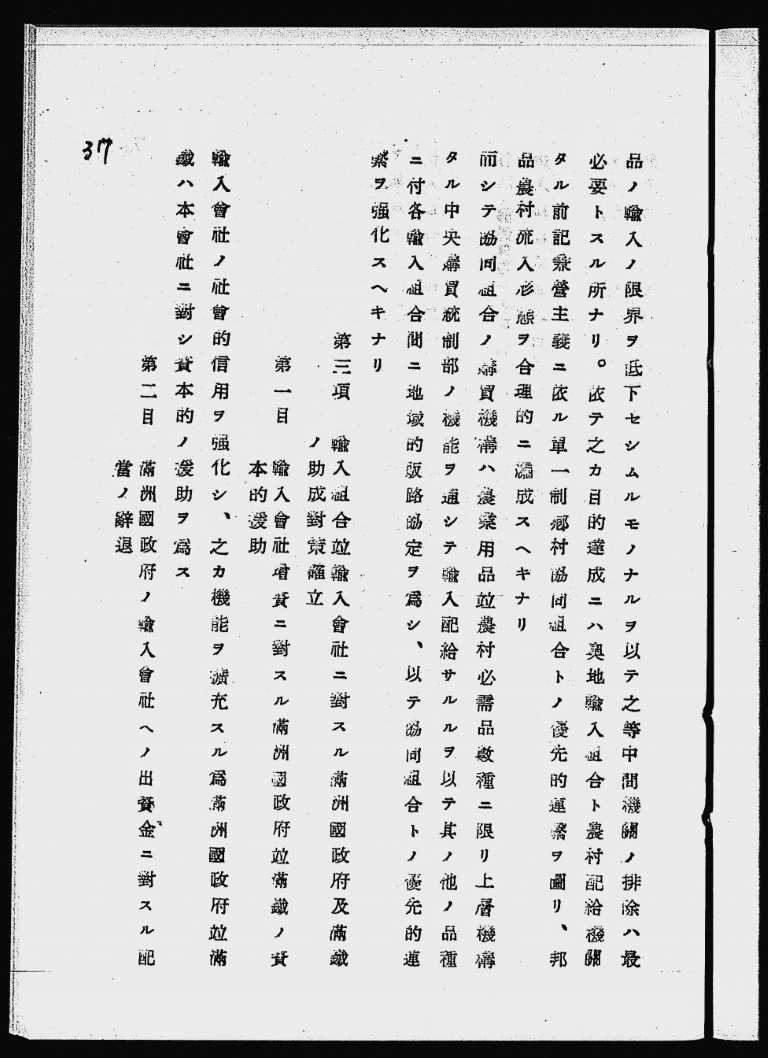 品ノ輸入ノ限界ヲ低下セシムルモノナルヲ以テ之等中間機關ノ排除ハ最
必要トスル所ナリ。依テ之カ目的達成ニハ奧地輸入組合ト農村配給機關
タル前記兼營主義ニ依ル單一制鄕村協同組合トノ優先的連繫ヲ圖リ、邦
品農村流入形態ヲ合理的ニ編成スヘキナリ
而シテ協同組合ノ購買機構ハ農業用品竝農村必需品數種ニ限リ上層機構
タル中央購買統制部ノ機能ヲ通シテ輸入配給サルルヲ以テ其ノ他ノ品種
ニ付各輸入組合間ニ地域的販路協定ヲ爲シ、以テ協同組合トノ優先的連
繫ヲ强化スヘキナリ
第三項 輸入組合竝輸入會社ニ對スル滿洲國政府及滿鐵
ノ助成對策確立
第一目 輸入會社增資ニ對スル滿洲國政府竝滿鐵ノ資
本的援助
輸入會社ノ社會的信用ヲ强化シ、之カ機能ヲ擴充スル爲滿洲國政府竝滿
鐵ハ本會社ニ對シ資本的ノ援助ヲ爲ス
第二目 滿洲國政府ノ輸入會社ヘノ出資金ニ對スル配
當ノ辭退
37